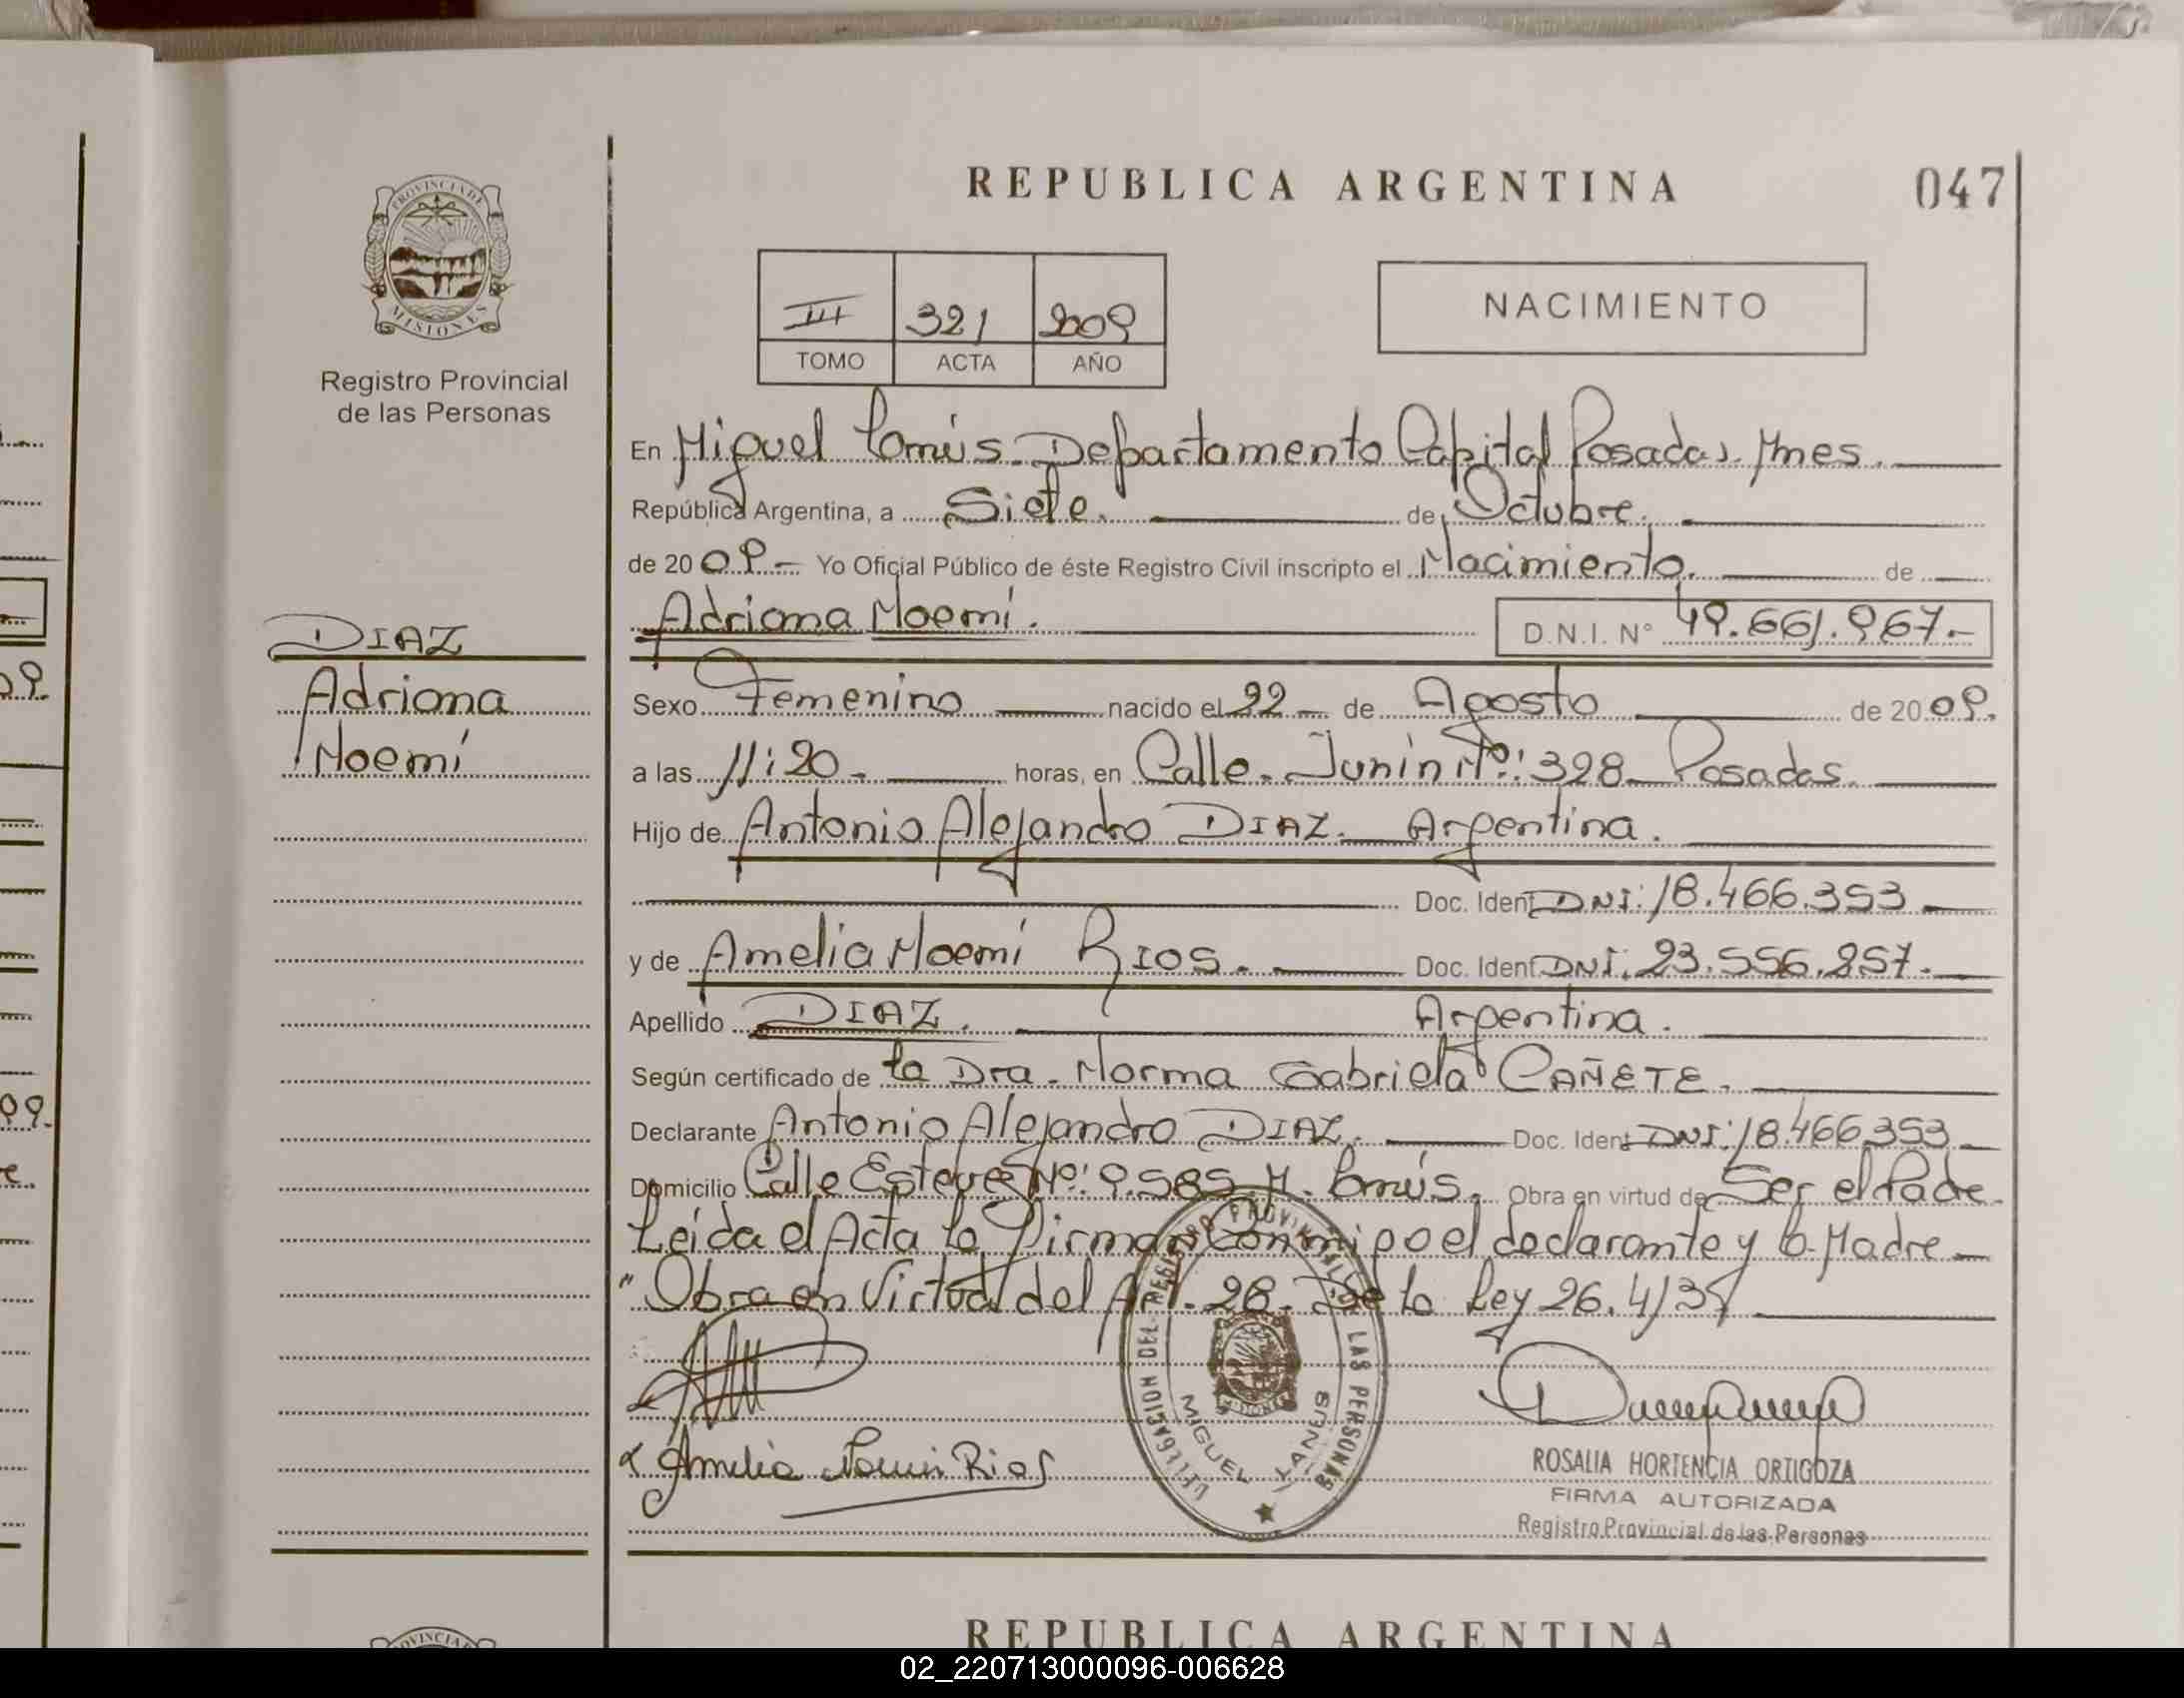 REPUBLICA ARGENTINA
047
PROVINCIA DE
MISIONES
Registro Provincial
de las Personas
III 321 2009
TOMO ACTA AÑO
NACIMIENTO
En Miguel Lanús - Departamento Capital Posadas. Mnes.
República Argentina, a Siete. de Octubre.
de 2009.- Yo Oficial Público de éste Registro Civil inscripto el Nacimiento. de
Adriana Noemí.
D.N.I. N° 49.661.967.-
DIAZ
Adriana
Noemí
Sexo Femenino nacido el 22 - de Agosto de 2009.
a las 11:20. horas, en Calle. Junín Nº: 328 - Posadas.
Hijo de Antonio Alejandro DIAZ. Argentina.
Doc. Ident. DNI: 18.466.353
y de Amelia Noemí RIOS. Doc. Ident. DNI. 23.556.257.
Apellido DIAZ. Argentina.
Según certificado de la Dra. Norma Gabriela CAÑETE.
Declarante Antonio Alejandro DIAZ. Doc. Ident. DNI: 18.466.353
Domicilio Calle Nº: 9.585 M. Lanús. Obra en virtud de Ser el Padre.
Leída el Acta la Firman Conmigo el declarante y la Madre
"Obra en Virtud del Art. 28. De la Ley 26.413"
Amelia Noemi Rios
DELEGACION DEL REGISTRO PROVINCIAL DE LAS PERSONAS
MIGUEL LANUS
ROSALIA HORTENCIA ORTIGOZA
FIRMA AUTORIZADA
Registro Provincial de las Personas
REPUBLICA ARGENTINA
02_220713000096-006628